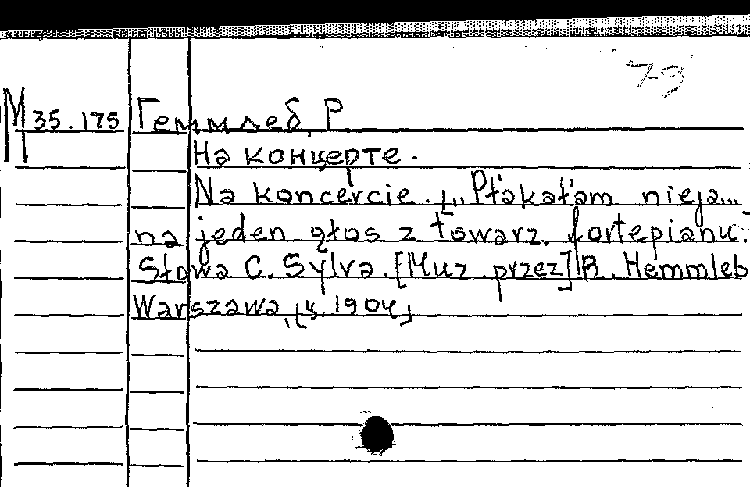 73
М 35.175 Геммлеб, Р
На концерте.
Na koncercie. „Płakałam nieja...
na jeden głos z towarz. fortepianu.
Słowa C. Sylva. [Muz przez] R. Hemmleb
Warszawa, [s. 1904]